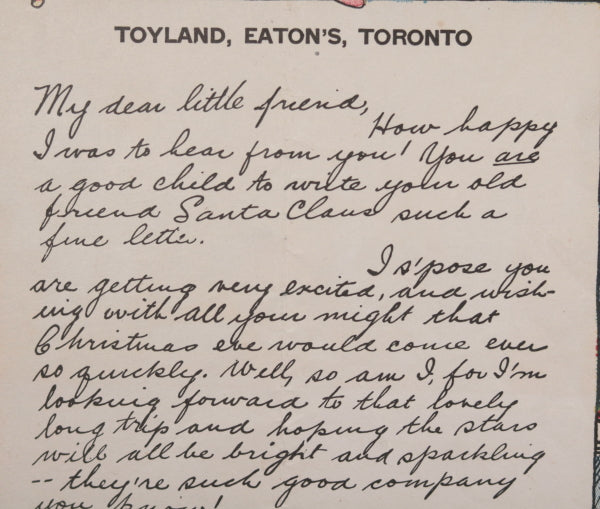 TOYLAND, EATON'S, TORONTO
My dear little friend,
How happy
I was to hear from you! You are
a good child to write your old
friend Santa Claus such a
fine letter.
I s'pose you
are getting very excited, and wish-
ing with all your might that
Christmas eve would come ever
so quickly. Well, so am I, for I'm
looking forward to that lovely
long trip and hoping the stars
will all be bright and sparkling
-- they're such good company
you know!